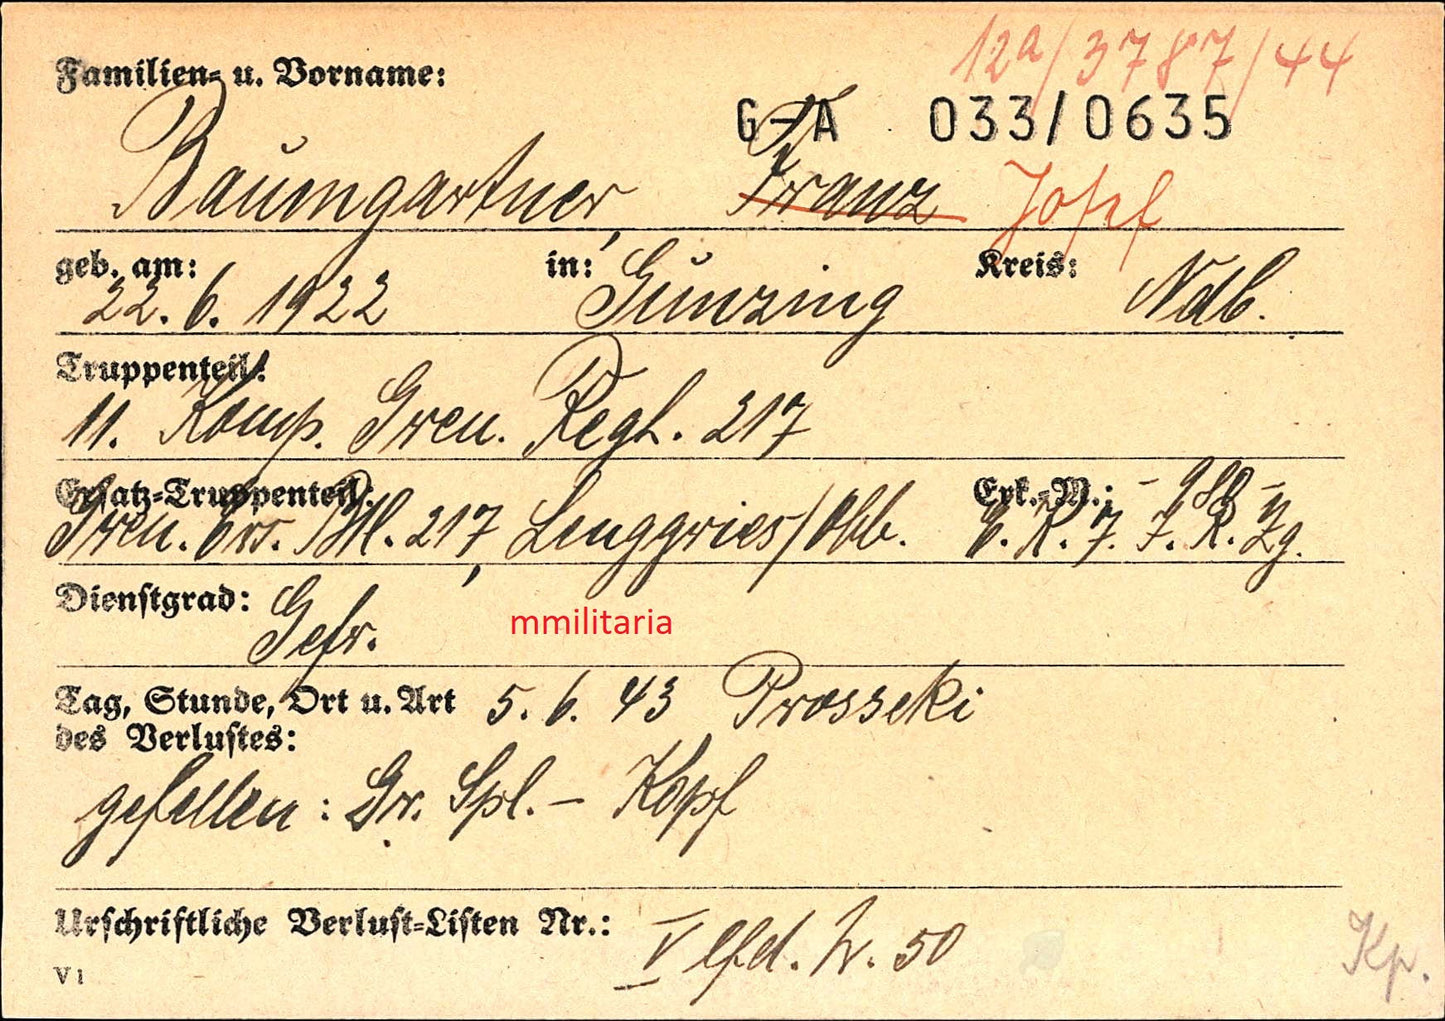 12a/3787/44
Familien- u. Vorname:
G-A 033/0635
Baumgartner, Franz Josef
geb. am: 22. 6. 1922 in: Günzing Kreis: Ndb.
Truppenteil:
11. Komp. Gren. Regt. 217
Ersatz-Truppenteil: Erk.-M.: - 980 -
Gren. Ers. Btl. 217, Lenggries/Obb. J. R. Zg.
Dienstgrad: Gefr.
mmilitaria
Tag, Stunde, Ort u. Art 5. 6. 43 Prosseki
des Verlustes:
gefallen: Gr. Spl. - Kopf
Urschriftliche Verlust-Listen Nr.: V lfd. Nr. 50
V 1
Kp.